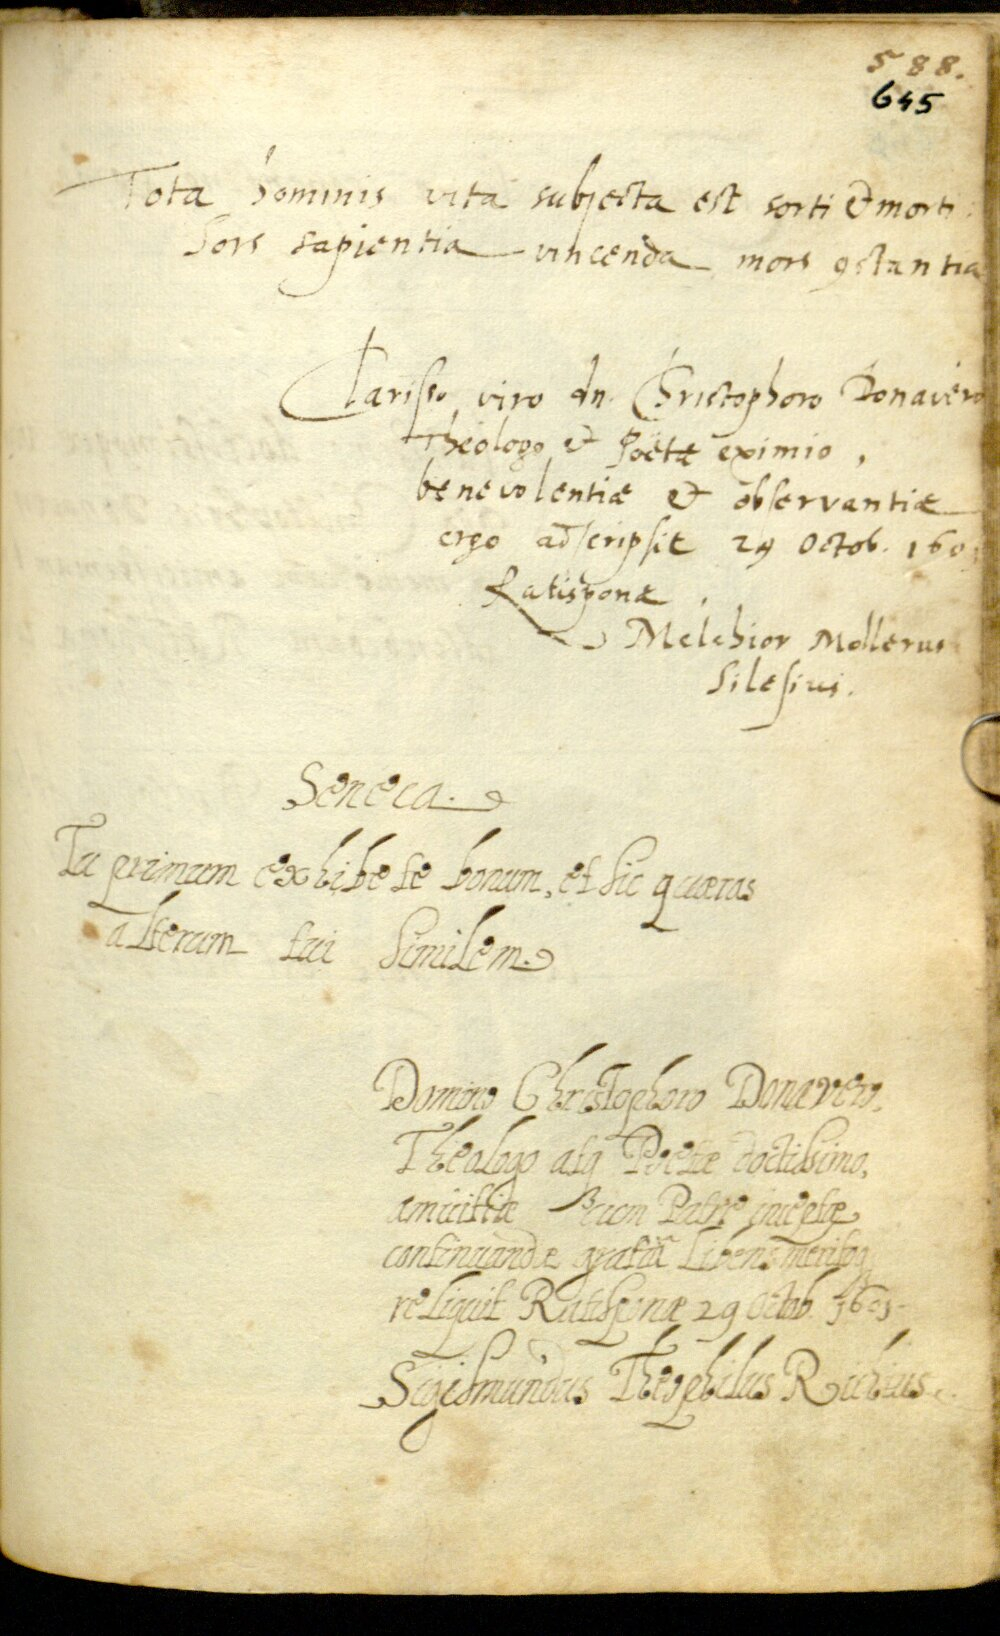 588.
645
Tota hominis vita subjecta est sorti & morti:
Sors sapientia vincenda mors 9stantia
Clarisso viro dn. Christophoro Donavero
Theologo & Poëtæ eximio,
benevolentiæ & observantiæ
ergo adscripsit 29 Octob. 160
Ratisponæ,
Melchior Mollerus
Silesius.
Seneca.
Tu primum exhibe te bonum, et sic quæras
alterum tui similem.
Domino Christophoro Donavero,
Theologo atq Poëtæ doctissimo,
amicitiæ cum Patre inceptæ
continuandæ gratiâ libens meritoq
reliquit Ratisponæ 29 Octob. 1601.
Sigismundus Theophilus Richius.